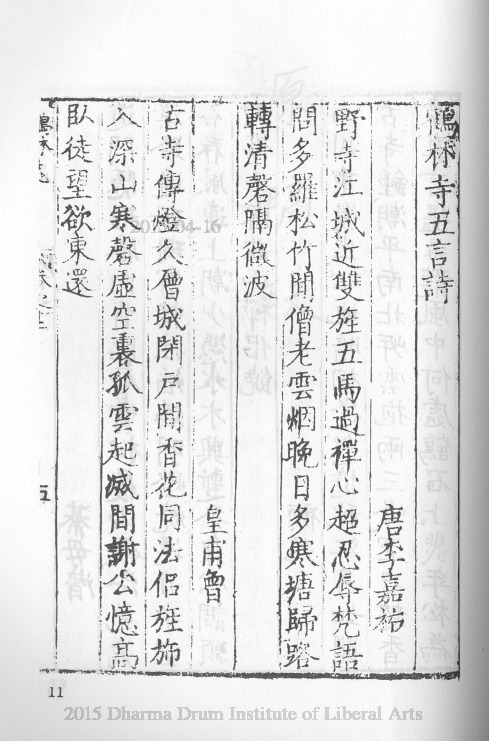 鶴林寺五言詩
唐李嘉祐
野寺江城近雙旌五馬過禪心超忍辱梵語
問多羅松竹間僧老雲烟晚日多寒塘歸路
轉清磬隔微波
皇甫曾
古寺傳燈久層城閉戶閒香花同法侶旌斾
入深山寒磬虛空裏孤雲起滅間謝公憶高
臥徒望欲東還
鶴林寺
卷之
五
11
2015-04-16
2015 Dharma Drum Institute of Liberal Arts